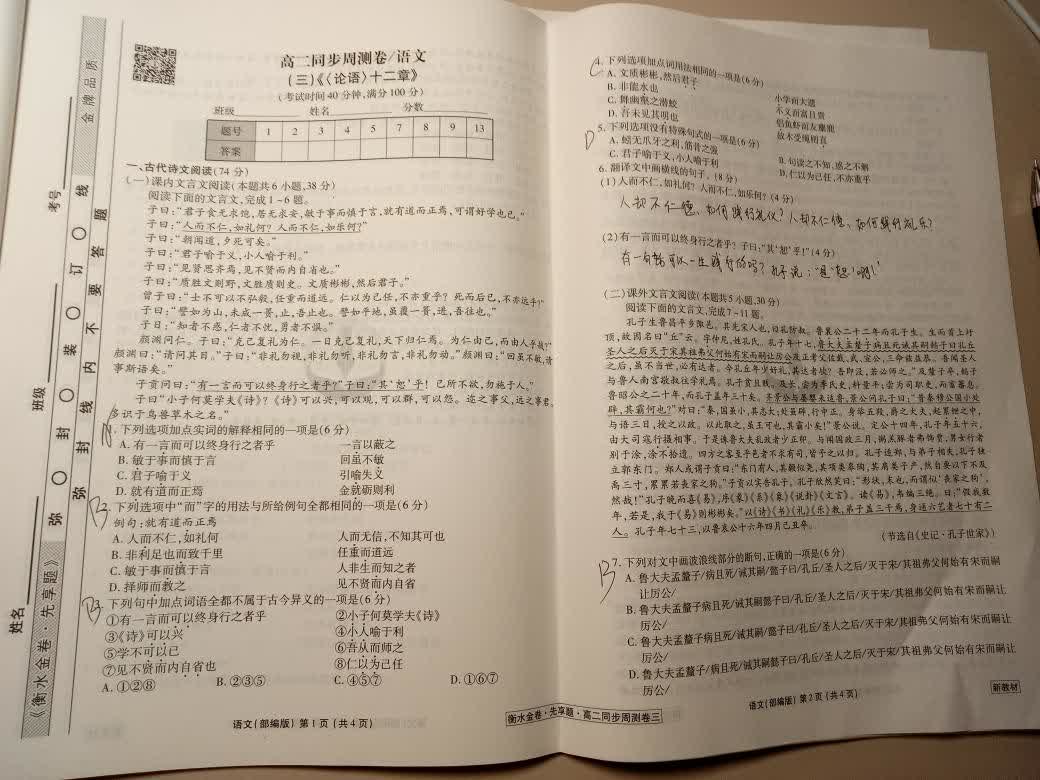 高二同步周测卷/语文
(三)《〈论语〉十二章》
(考试时间40分钟,满分100分)
班级 姓名 分数
题号 1 2 3 4 5 7 8 9 13
答案
一、古代诗文阅读(74分)
(一)课内文言文阅读(本题共6小题,38分)
阅读下面的文言文,完成1~6题。
子曰:“君子食无求饱,居无求安,敏于事而慎于言,就有道而正焉,可谓好学也已。”
子曰:“人而不仁,如礼何?人而不仁,如乐何?”
子曰:“朝闻道,夕死可矣。”
子曰:“君子喻于义,小人喻于利。”
子曰:“见贤思齐焉,见不贤而内自省也。”
子曰:“质胜文则野,文胜质则史。文质彬彬,然后君子。”
曾子曰:“士不可以不弘毅,任重而道远。仁以为己任,不亦重乎?死而后已,不亦远乎?”
子曰:“譬如为山,未成一篑,止,吾止也。譬如平地,虽覆一篑,进,吾往也。”
子曰:“知者不惑,仁者不忧,勇者不惧。”
颜渊问仁。子曰:“克己复礼为仁。一日克己复礼,天下归仁焉。为仁由己,而由人乎哉?”
颜渊曰:“请问其目。”子曰:“非礼勿视,非礼勿听,非礼勿言,非礼勿动。”颜渊曰:“回虽不敏,请
事斯语矣。”
子贡问曰:“有一言而可以终身行之者乎?”子曰:“其‘恕’乎!己所不欲,勿施于人。”
子曰“小子何莫学夫《诗》?《诗》可以兴,可以观,可以群,可以怨。迩之事父,远之事君,
多识于鸟兽草木之名。”
1. 下列选项加点实词的解释相同的一项是(6分)
A. 有一言而可以终身行之者乎 一言以蔽之
B. 敏于事而慎于言 回虽不敏
C. 君子喻于义 引喻失义
D. 就有道而正焉 金就砺则利
B 2. 下列选项中“而”字的用法与所给例句全都相同的一项是(6分)
例句:就有道而正焉
A. 人而不仁,如礼何 人而无信,不知其可也
B. 非利足也而致千里 任重而道远
C. 敏于事而慎于言 人非生而知之者
D. 择师而教之 见不贤而内自省
3. 下列句中加点词语全都不属于古今异义的一项是(6分)
①有一言而可以终身行之者乎 ②小子何莫学夫《诗》
③《诗》可以兴 ④小人喻于利
⑤学不可以已 ⑥吾从而师之
⑦见不贤而内自省也 ⑧仁以为己任
A. ①②⑧ B. ②③⑤ C. ④⑤⑦ D. ①⑥⑦
语文(部编版) 第1页(共4页)
金牌品质
《衡水金卷·先享题》
姓名
班级
考号
弥 封 装 订 线
弥 封 线 内 不 要 答 题
C 4. 下列选项加点词用法相同的一项是(6分)
A. 文质彬彬,然后君子 小学而大遗
B. 非能水也 不义而富且贵
C. 舞幽壑之潜蛟 侣鱼虾而友麋鹿
D. 吾未见其明也 故木受绳则直
D 5. 下列选项没有特殊句式的一项是(6分)
A. 蚓无爪牙之利,筋骨之强 B. 句读之不知,惑之不解
C. 君子喻于义,小人喻于利 D. 仁以为己任,不亦重乎
6. 翻译文中画横线的句子。(8分)
(1)人而不仁,如礼何?人而不仁,如乐何?(4分)
人却不仁德,如何践行礼仪?人却不仁德,如何践行礼乐?
(2)有一言而可以终身行之者乎?子曰:“其‘恕’乎!”(4分)
有一句话可以一生践行的吗?孔子说:“是‘恕’吧!”
(二)课外文言文阅读(本题共5小题,30分)
阅读下面的文言文,完成7~11题。
孔子生鲁昌平乡陬邑。其先宋人也,曰孔防叔。鲁襄公二十二年而孔子生。生而首上圩
顶,故因名曰“丘”云。字仲尼,姓孔氏。孔子年十七,鲁大夫孟釐子病且死诫其嗣懿子曰孔丘
圣人之后灭于宋其祖弗父何始有宋而嗣让厉公及正考父佐戴、武、宣公,三命兹益恭。吾闻圣人
之后,虽不当世,必有达者。今孔丘年少好礼,其达者欤?吾即没,若必师之。”及釐子卒,懿子
与鲁人南宫敬叔往学礼焉。孔子贫且贱。及长,尝为季氏史,料量平;尝为司职吏,而畜蕃息。
鲁昭公之二十年,而孔子盖年三十矣。齐景公与晏婴来适鲁,景公问孔子曰:“昔秦穆公国小处
辟,其霸何也?”对曰:“秦,国虽小,其志大;处虽辟,行中正。身举五羖,爵之大夫,起累绁之中,
与语三日,授之以政。以此取之,虽王可也,其霸小矣!”景公说。定公十四年,孔子年五十六,
由大司寇行摄相事。于是诛鲁大夫乱政者少正卯。与闻国政三月,粥羔豚者弗饰贾,男女行者
别于涂,涂不拾遗。四方之客至乎邑者不求有司,皆予之以归。孔子适郑,与弟子相失,孔子独
立郭东门。郑人或谓子贡曰:“东门有人,其颡似尧,其项类皋陶,其肩类子产,然自要以下不及
禹三寸,累累若丧家之狗。”子贡以实告孔子,孔子欣然笑曰:“形状,末也,而谓似‘丧家之狗’,
然哉!”孔子晚而喜《易》,序《彖》《系》《象》《说卦》《文言》。读《易》,韦编三绝。曰:“假我数
年,若是,我于《易》则彬彬矣。”以《诗》《书》《礼》《乐》教,弟子盖三千焉,身通六艺者七十有二
人。孔子年七十三,以鲁哀公十六年四月己丑卒。
(节选自《史记·孔子世家》)
B 7. 下列对文中画波浪线部分的断句,正确的一项是(6分)
A. 鲁大夫孟釐子/病且死/诫其嗣/懿子曰/孔丘/圣人之后/灭于宋/其祖弗父何始有宋而嗣
让厉公/
B. 鲁大夫孟釐子病且死/诫其嗣懿子曰/孔丘/圣人之后/灭于宋/其祖弗父何始有宋而嗣让
厉公/
C. 鲁大夫孟釐子病且死/诫其嗣/懿子曰/孔丘/圣人之后/灭于宋/其祖弗父何始有宋而嗣让
厉公/
D. 鲁大夫孟釐子/病且死/诫其嗣懿子曰/孔丘/圣人之后/灭于宋/其祖弗父何始有宋而嗣让
厉公/
衡水金卷·先享题·高二同步周测卷三 语文(部编版) 第2页(共4页) 新教材